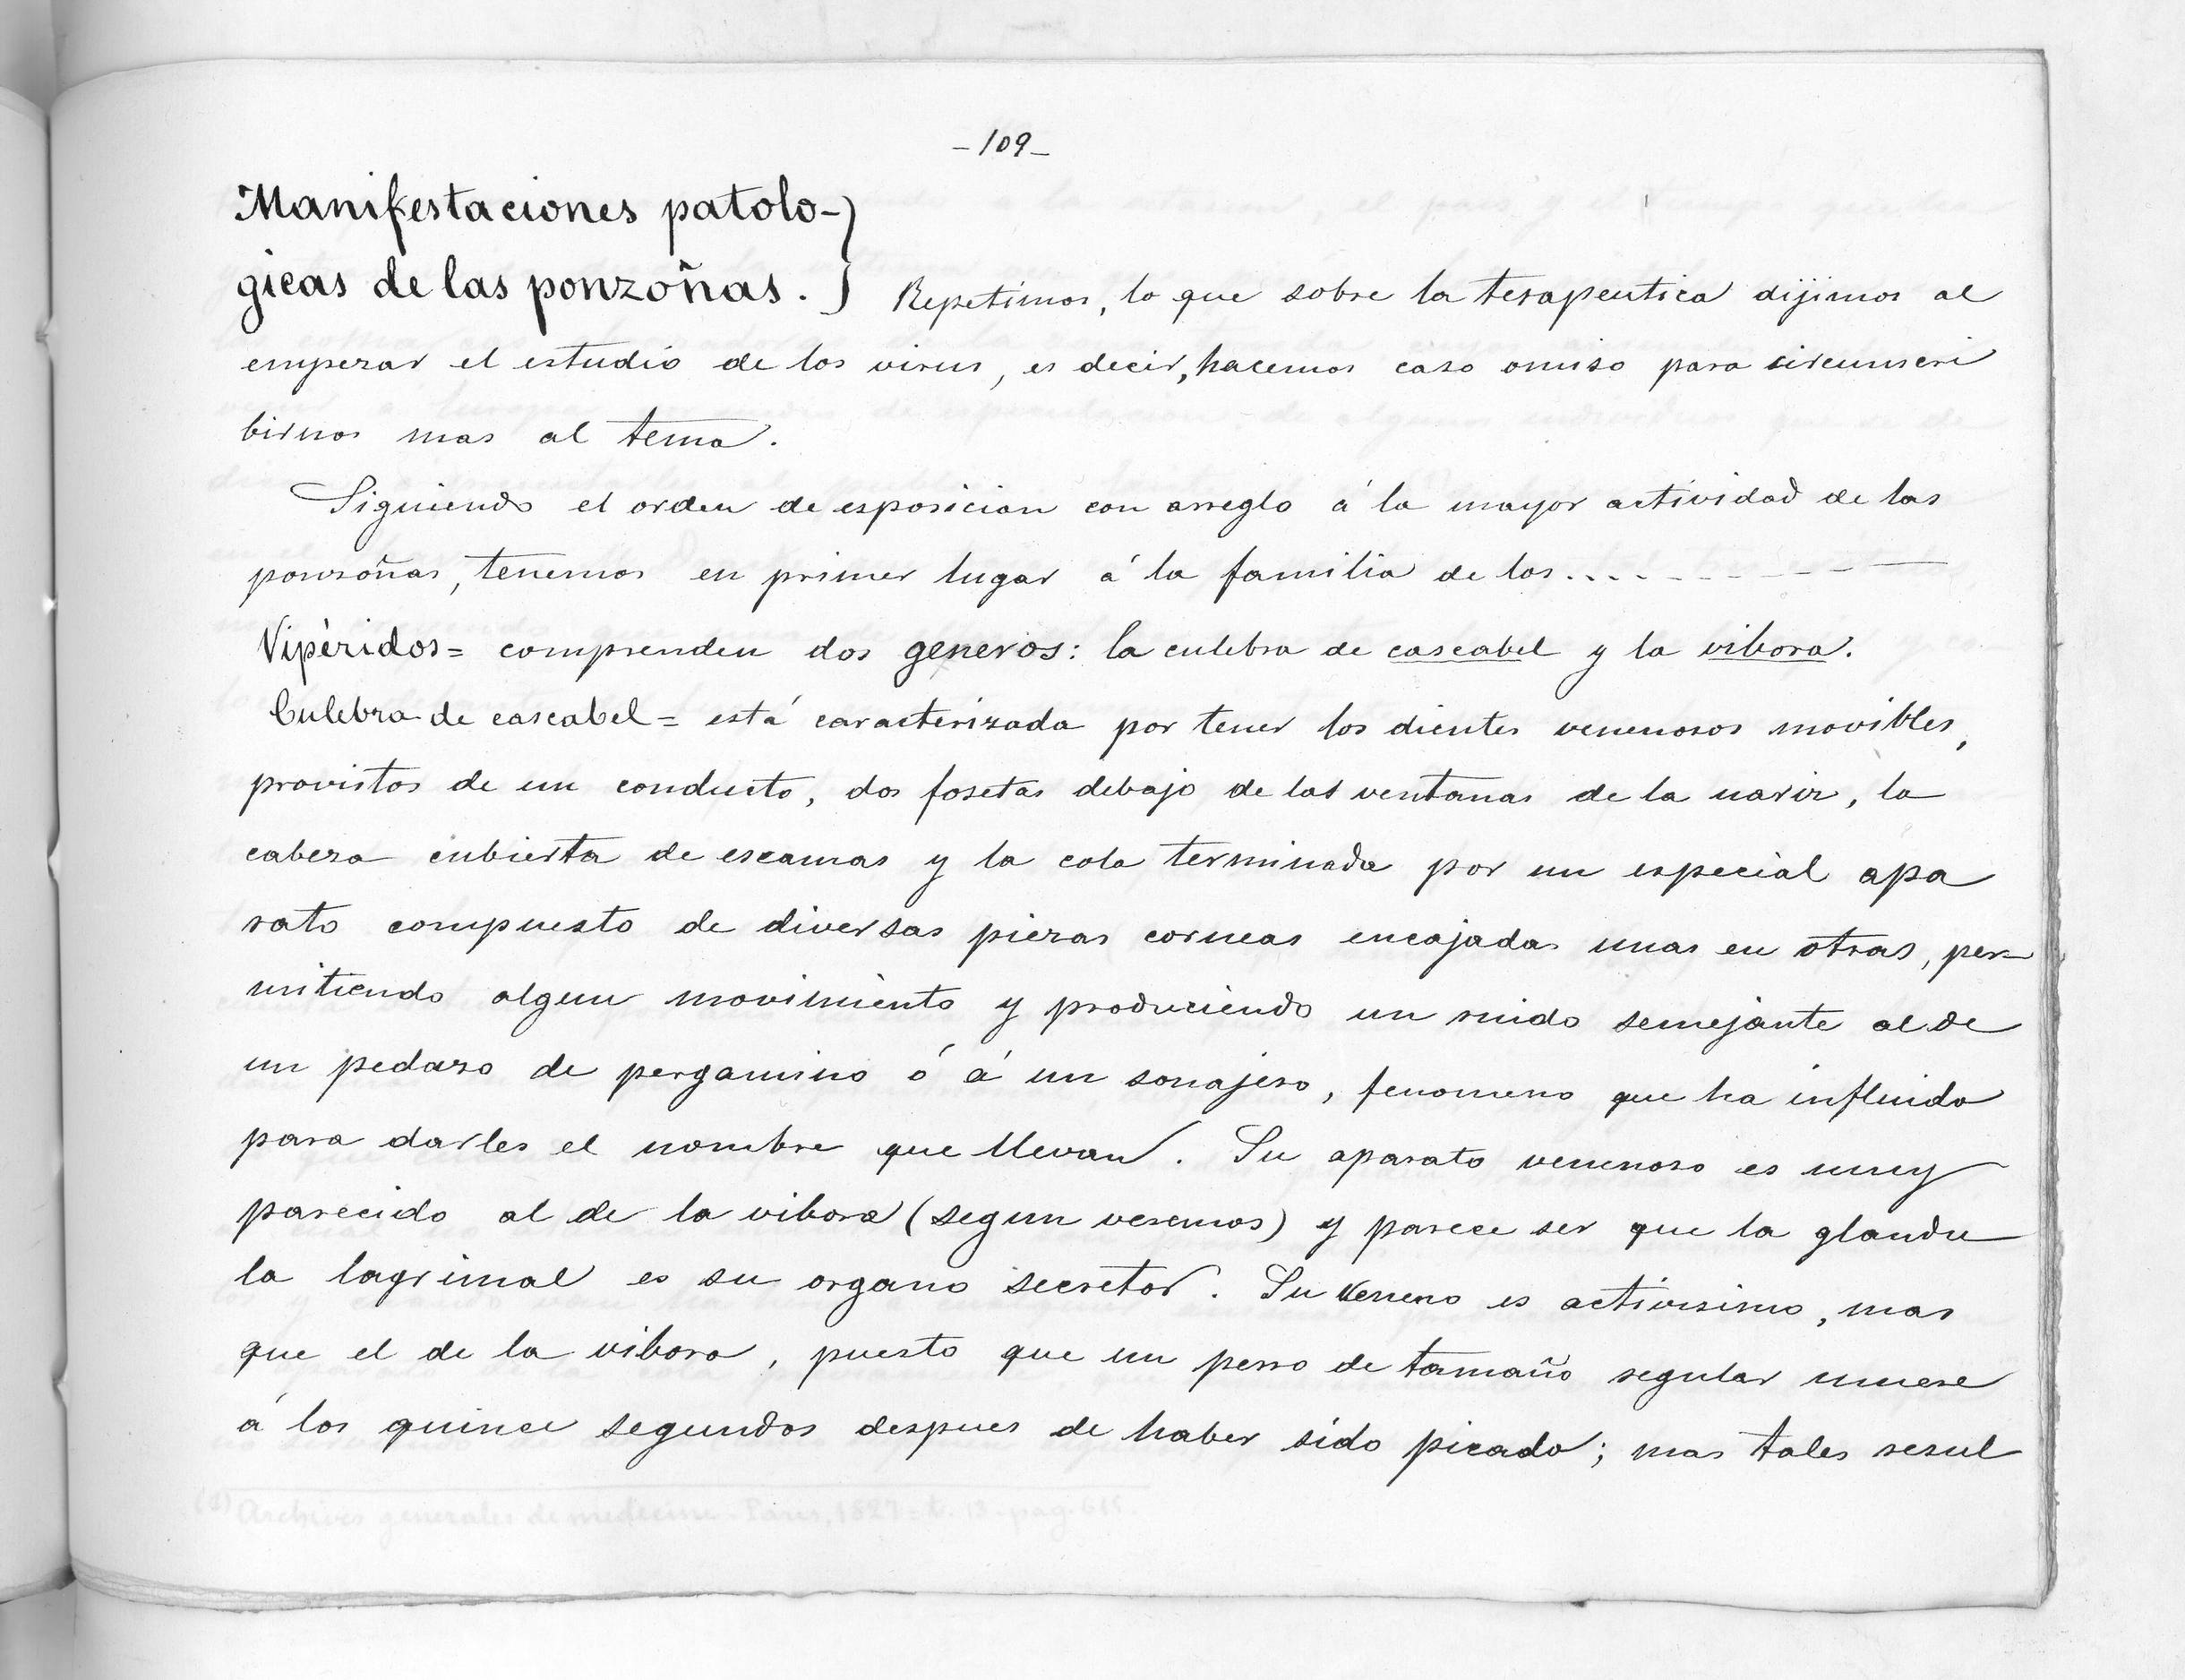 -109-
Manifestaciones patolo-
gicas de las ponzoñas. Repetimos, lo que sobre la terapeutica dijimos al
empezar el estudio de los virus, es decir, hacemos caso omiso para circunscri
birnos mas al tema.
Siguiendo el orden de esposicion con arreglo á la mayor actividad de las
ponzoñas, tenemos en primer lugar á la familia de los...........
Vipéridos= comprenden dos generos: la culebra de cascabel y la vibora.
Culebra de cascabel= está caracterizada por tener los dientes venenosos movibles,
provistos de un conducto, dos fosetas debajo de las ventanas de la nariz, la
cabeza cubierta de escamas y la cola terminada por un especial apa
rato compuesto de diversas piezas corneas encajadas unas en otras, per-
mitiendo algun movimiento y produciendo un ruido semejante al de
un pedazo de pergamino ó á un sonajero, fenomeno que ha influido
para darles el nombre que llevan. Su aparato venenoso es muy
parecido al de la vibora (segun veremos) y parece ser que la glandu
la lagrimal es su organo secretor. Su veneno es activisimo, mas
que el de la vibora, puesto que un perro de tamaño regular muere
á los quince segundos despues de haber sido picado; mas tales resul
(1) Archives generales de medecine - Paris, 1827 = t. 13 - pag.